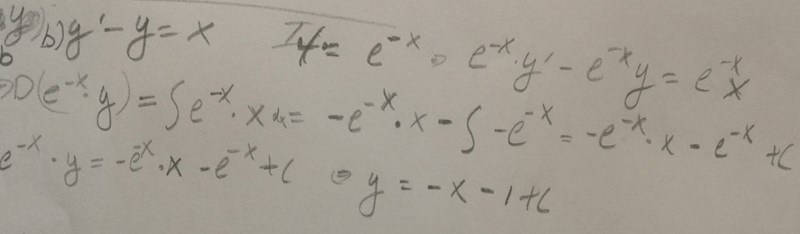 b) y' - y = x   IF = e^{-x} ⇒ e^{-x}·y' - e^{-x}y = e^{-x}x
⇒ D(e^{-x}·y) = ∫e^{-x}·x dx = -e^{-x}·x - ∫-e^{-x} = -e^{-x}·x - e^{-x} + C
e^{-x}·y = -e^{-x}·x - e^{-x} + C ⇒ y = -x - 1 + C